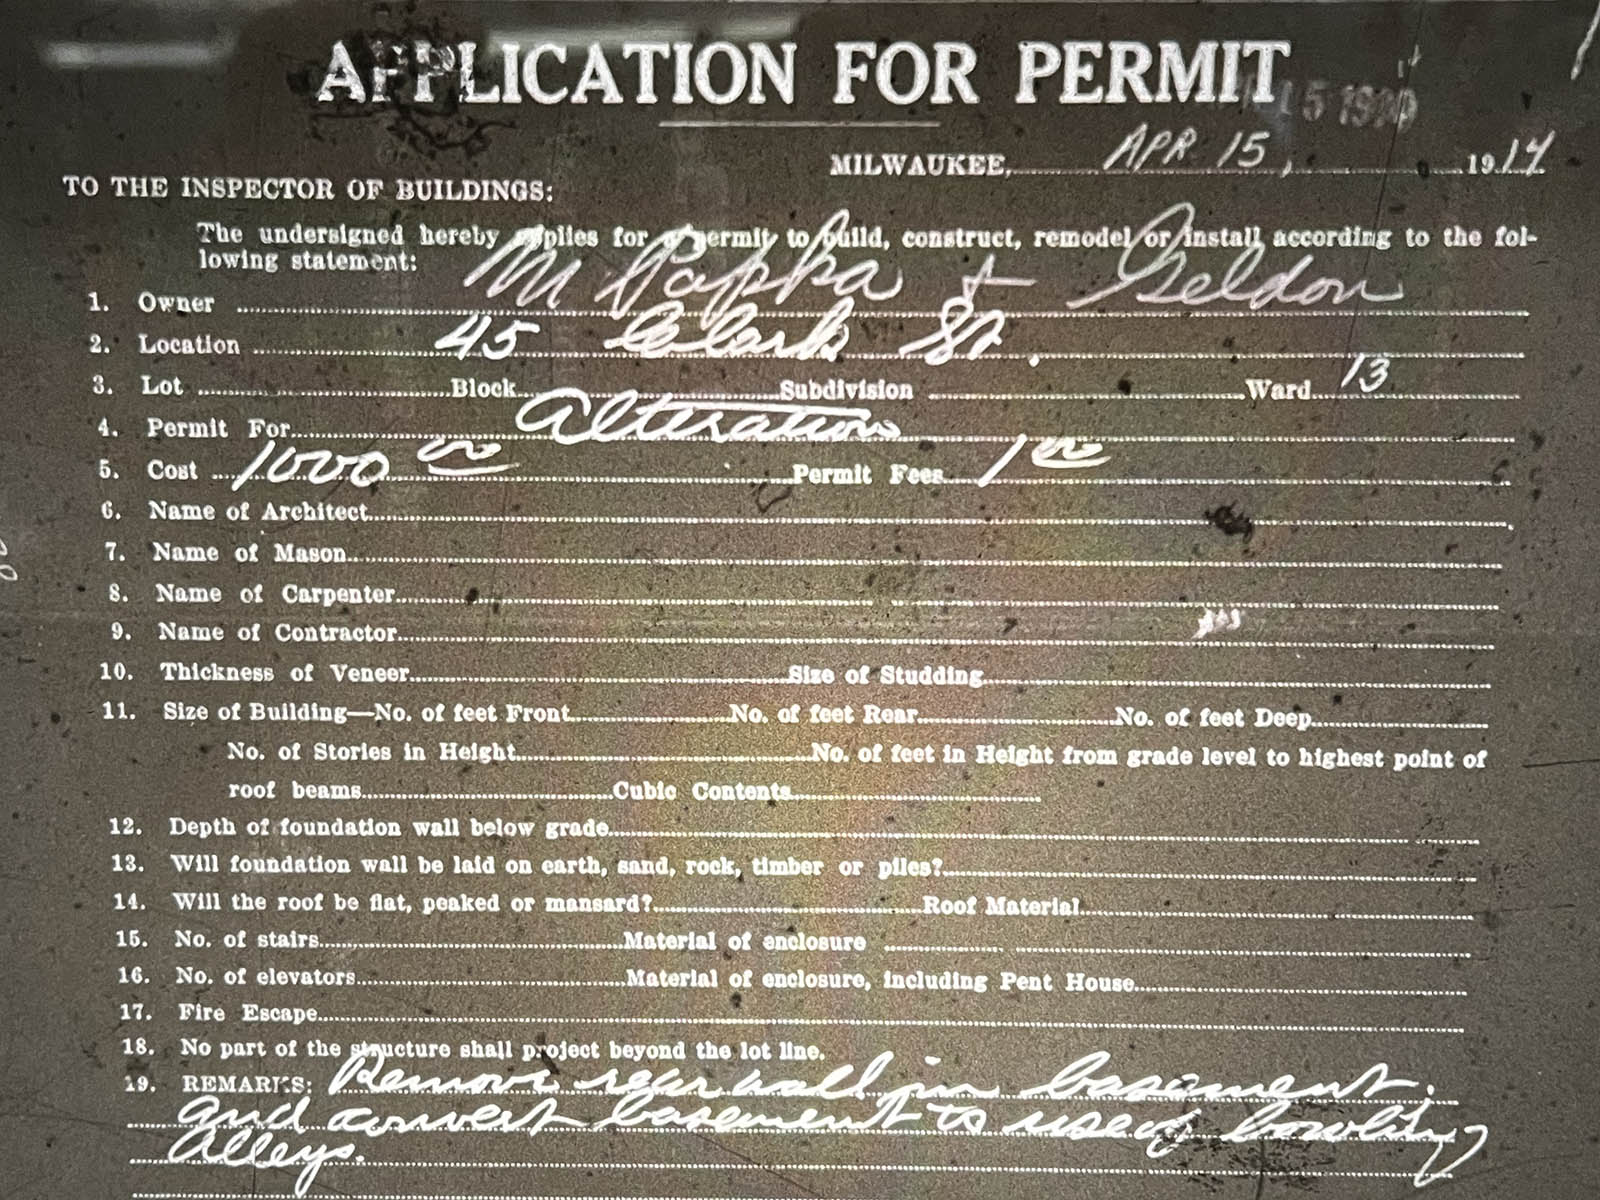 APPLICATION FOR PERMIT
15 1920
MILWAUKEE, APR. 15, 1914
TO THE INSPECTOR OF BUILDINGS:
The undersigned hereby applies for a permit to build, construct, remodel or install according to the fol-
lowing statement:
1. Owner M Pappa + Geldon
2. Location 45 Clark St.
3. Lot Block Subdivision Ward 13
4. Permit For Alteration
5. Cost 1000 00 Permit Fees 1 00
6. Name of Architect
7. Name of Mason
8. Name of Carpenter
9. Name of Contractor
10. Thickness of Veneer Size of Studding
11. Size of Building—No. of feet Front No. of feet Rear No. of feet Deep
No. of Stories in Height No. of feet in Height from grade level to highest point of
roof beams Cubic Contents
12. Depth of foundation wall below grade
13. Will foundation wall be laid on earth, sand, rock, timber or piles?
14. Will the roof be flat, peaked or mansard? Roof Material
15. No. of stairs Material of enclosure
16. No. of elevators Material of enclosure, including Pent House
17. Fire Escape
18. No part of the structure shall project beyond the lot line.
19. REMARKS: Remove rear wall in basement.
and convert basement to use of bowling
alleys.